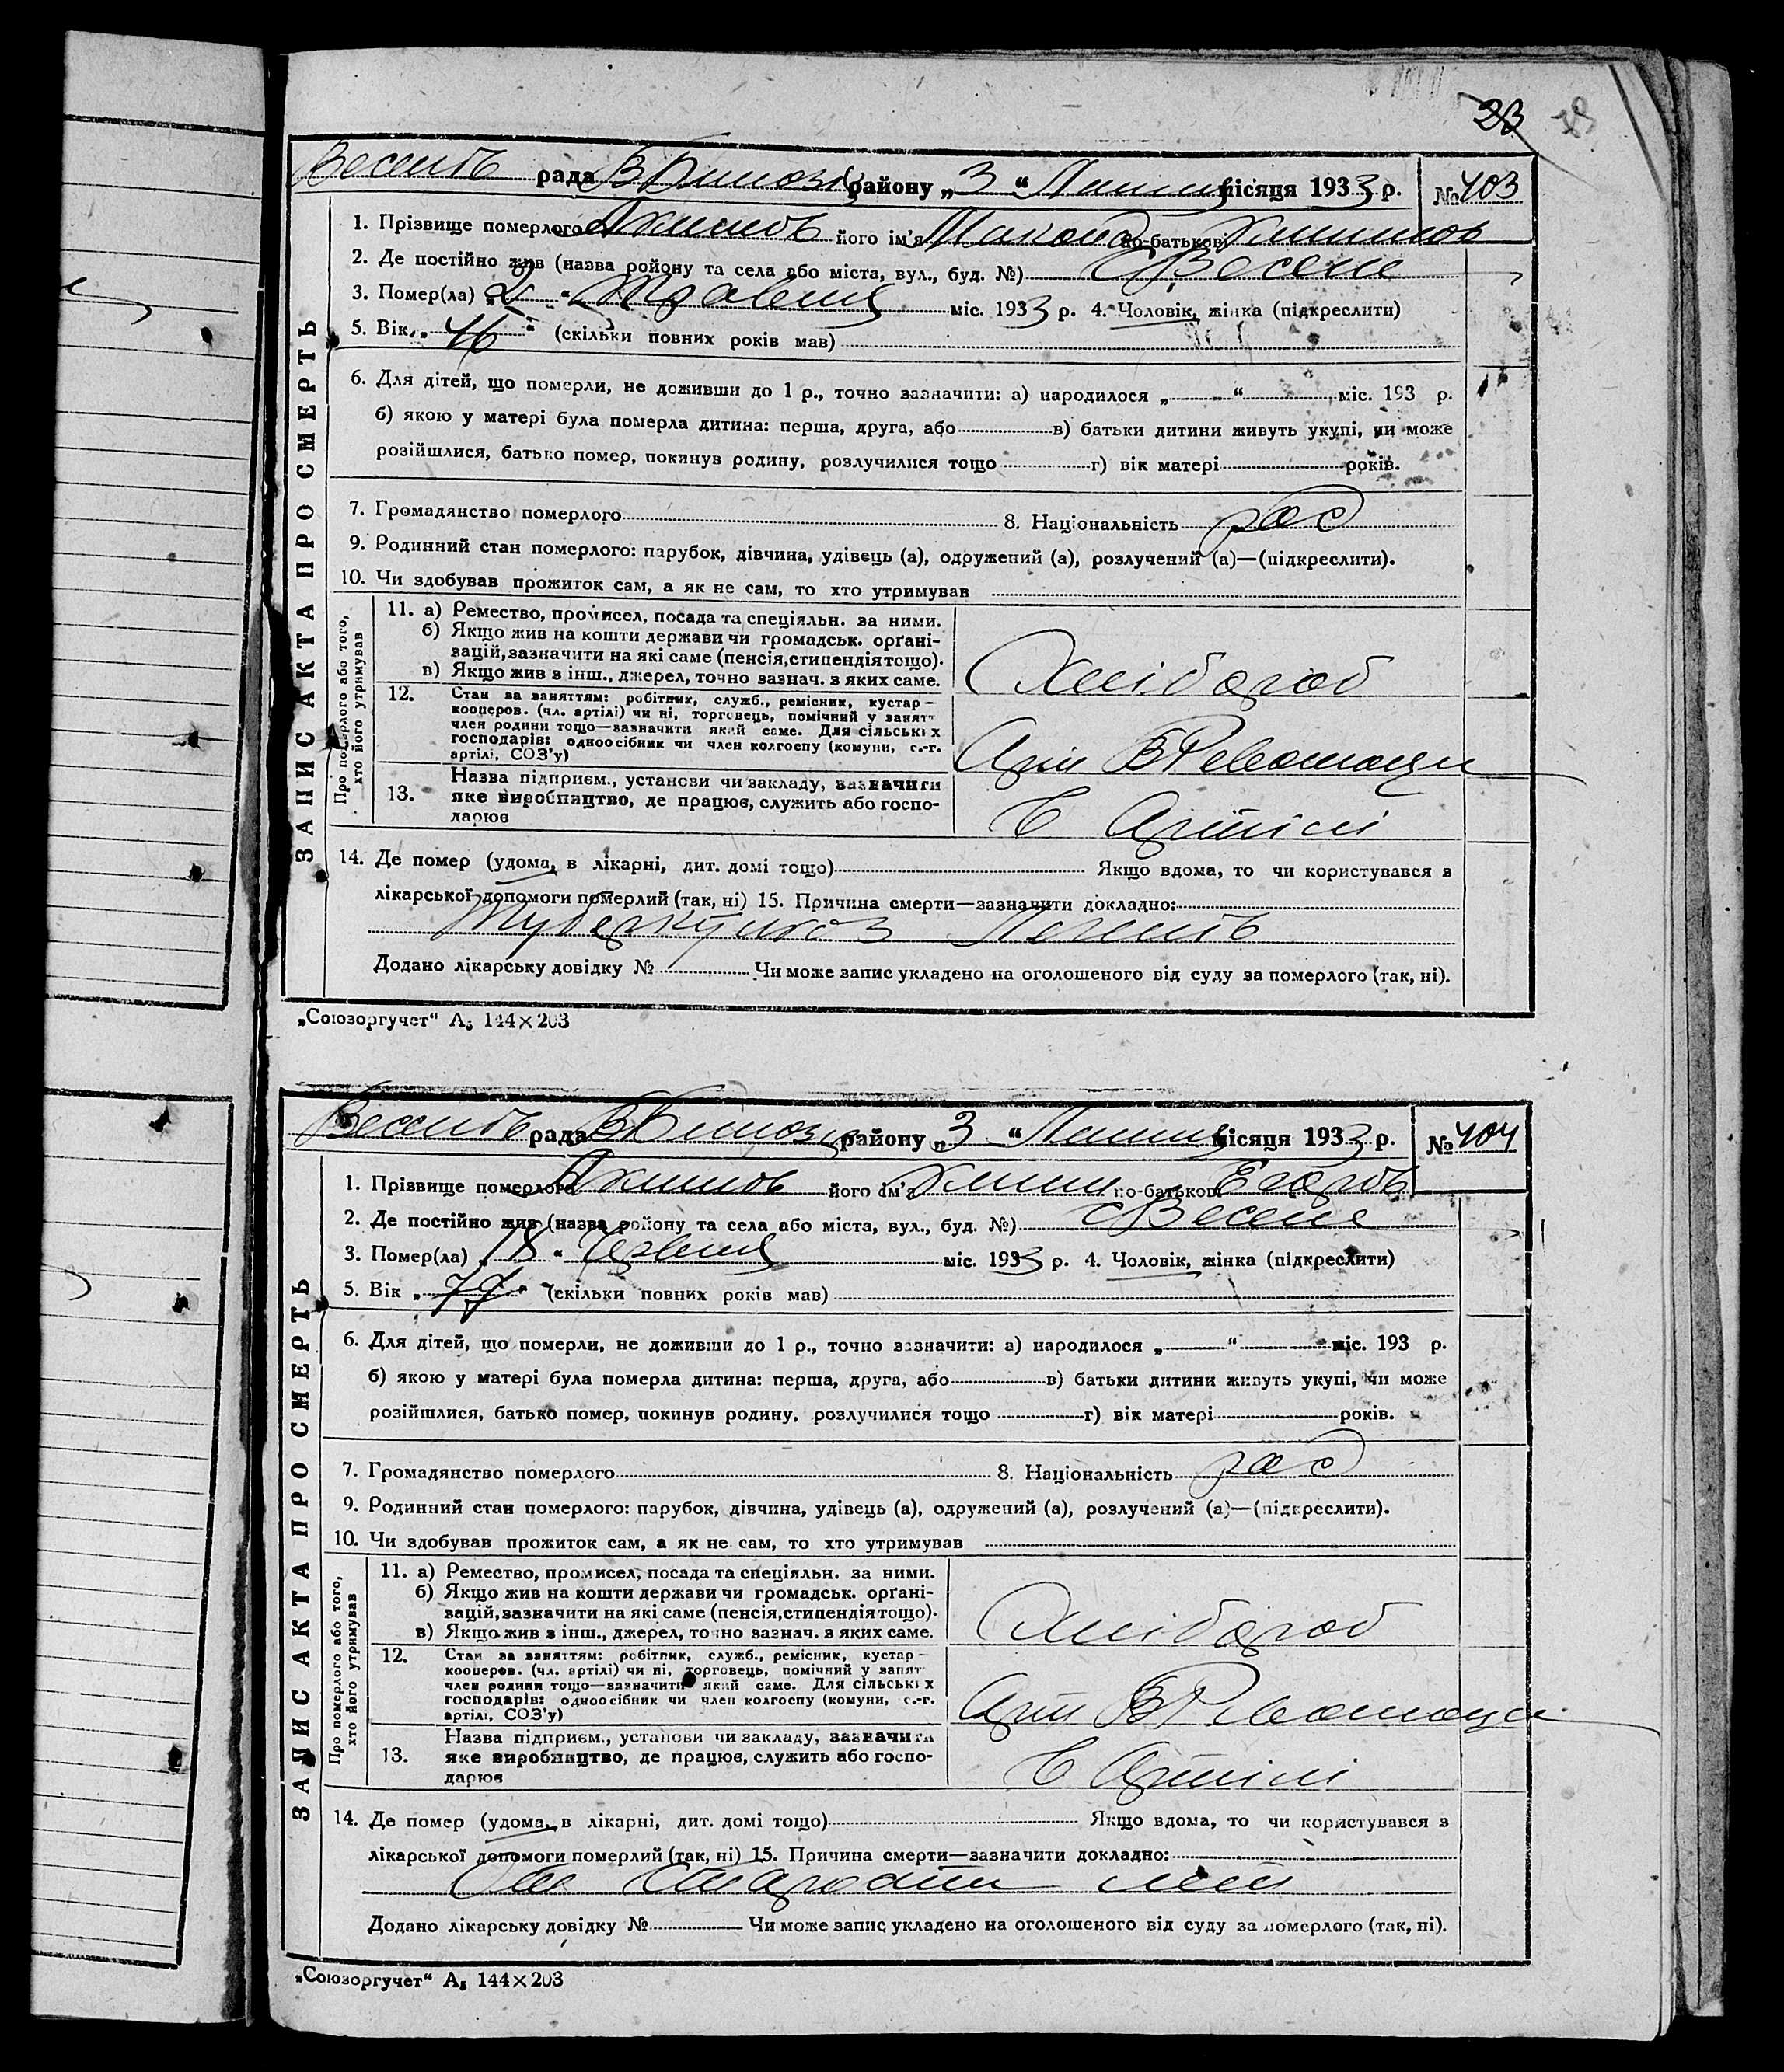 23 23
рада району „3“ Липня місяця 1933 р. №403
1. Прізвище померлого Якимов його ім'я по-батькові
2. Де постійно жив (назва району та села або міста, вул., буд. №) с Веселе
3. Помер(ла) „2“ Травеня міс. 1933 р. 4. Чоловік, жінка (підкреслити)
5. Вік „46“ (скільки повних років мав)
6. Для дітей, що померли, не доживши до 1 р., точно зазначити: а) народилося „ “ міс. 193 р.
б) якою у матері була померла дитина: перша, друга, або в) батьки дитини живуть укупі, чи може
розійшлися, батько помер, покинув родину, розлучилися тощо г) вік матері років.
7. Громадянство померлого 8. Національність рос
9. Родинний стан померлого: парубок, дівчина, удівець (а), одружений (а), розлучений (а)—(підкреслити).
10. Чи здобував прожиток сам, а як не сам, то хто утримував
ЗАПИС АКТА ПРО СМЕРТЬ
Про померлого або того,
хто його утримував
11. а) Ремество, промисел, посада та спеціяльн. за ними.
б) Якщо жив на кошти держави чи громадськ. орґані-
зацій, зазначити на які саме (пенсія, стипендія тощо).
в) Якщо жив з інш., джерел, точно зазнач. з яких саме.
Хлібороб
12. Стан за заняттям: робітник, служб., ремісник, кустар—
кооперов. (чл. артілі) чи ні, торговець, помічний у занят
член родини тощо—зазначити який саме. Для сільських
господарів: одноосібник чи член колгоспу (комуни, с.-г.
артілі, СОЗ'у)
Арт
13. Назва підприєм., установи чи закладу, зазначити
яке виробництво, де працює, служить або госпо-
дарює
в Артілі
14. Де помер (удома, в лікарні, дит. домі тощо) Якщо вдома, то чи користувався з
лікарської допомоги померлий (так, ні) 15. Причина смерти—зазначити докладно:
Туберкульоз
Додано лікарську довідку № Чи може запис укладено на оголошеного від суду за померлого (так, ні).
„Союзоргучет“ А₅ 144×203
рада району „3“ Липня місяця 1933 р. №404
1. Прізвище померлого Якимов його ім'я по-батькові Егоров
2. Де постійно жив (назва району та села або міста, вул., буд. №) с Веселе
3. Помер(ла) „18“ Червня міс. 1933 р. 4. Чоловік, жінка (підкреслити)
5. Вік „77“ (скільки повних років мав)
6. Для дітей, що померли, не доживши до 1 р., точно зазначити: а) народилося „ “ міс. 193 р.
б) якою у матері була померла дитина: перша, друга, або в) батьки дитини живуть укупі, чи може
розійшлися, батько помер, покинув родину, розлучилися тощо г) вік матері років.
7. Громадянство померлого 8. Національність рос
9. Родинний стан померлого: парубок, дівчина, удівець (а), одружений (а), розлучений (а)—(підкреслити).
10. Чи здобував прожиток сам, а як не сам, то хто утримував
ЗАПИС АКТА ПРО СМЕРТЬ
Про померлого або того,
хто його утримував
11. а) Ремество, промисел, посада та спеціяльн. за ними.
б) Якщо жив на кошти держави чи громадськ. орґані-
зацій, зазначити на які саме (пенсія, стипендія тощо).
в) Якщо жив з інш., джерел, точно зазнач. з яких саме.
Хлібороб
12. Стан за заняттям: робітник, служб., ремісник, кустар—
кооперов. (чл. артілі) чи ні, торговець, помічний у занят
член родини тощо—зазначити який саме. Для сільських
господарів: одноосібник чи член колгоспу (комуни, с.-г.
артілі, СОЗ'у)
Арт
13. Назва підприєм., установи чи закладу, зазначити
яке виробництво, де працює, служить або госпо-
дарює
в Артілі
14. Де помер (удома, в лікарні, дит. домі тощо) Якщо вдома, то чи користувався з
лікарської допомоги померлий (так, ні) 15. Причина смерти—зазначити докладно:
От старости лет
Додано лікарську довідку № Чи може запис укладено на оголошеного від суду за померлого (так, ні).
„Союзоргучет“ А₅ 144×203